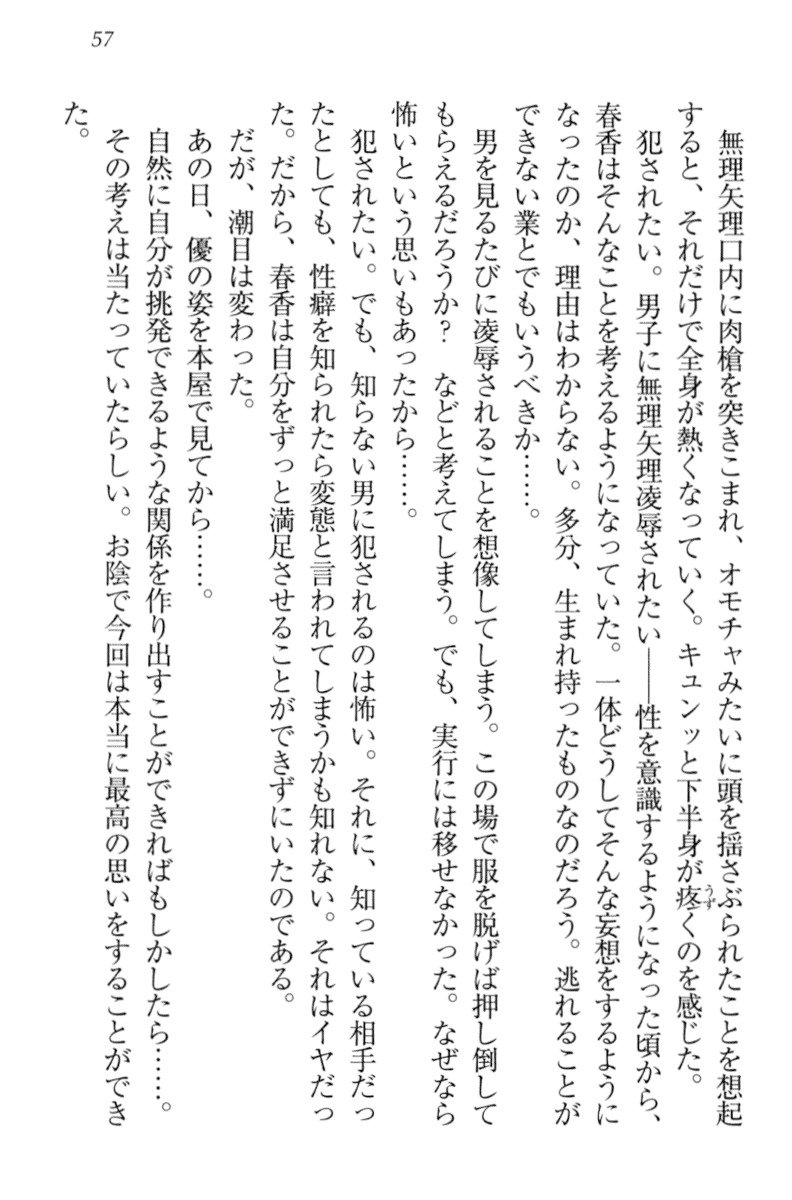 57
無理矢理口内に肉槍を突きこまれ、オモチャみたいに頭を揺さぶられたことを想起
すると、それだけで全身が熱くなっていく。キュンッと下半身が疼くのを感じた。
うず
犯されたい。男子に無理矢理凌辱されたい――性を意識するようになった頃から、
春香はそんなことを考えるようになっていた。一体どうしてそんな妄想をするように
なったのか、理由はわからない。多分、生まれ持ったものなのだろう。逃れることが
できない業とでもいうべきか……。
男を見るたびに凌辱されることを想像してしまう。この場で服を脱げば押し倒して
もらえるだろうか？　などと考えてしまう。でも、実行には移せなかった。なぜなら
怖いという思いもあったから……。
犯されたい。でも、知らない男に犯されるのは怖い。それに、知っている相手だっ
たとしても、性癖を知られたら変態と言われてしまうかも知れない。それはイヤだっ
た。だから、春香は自分をずっと満足させることができずにいたのである。
だが、潮目は変わった。
あの日、優の姿を本屋で見てから……。
自然に自分が挑発できるような関係を作り出すことができればもしかしたら……。
その考えは当たっていたらしい。お陰で今回は本当に最高の思いをすることができ
た。